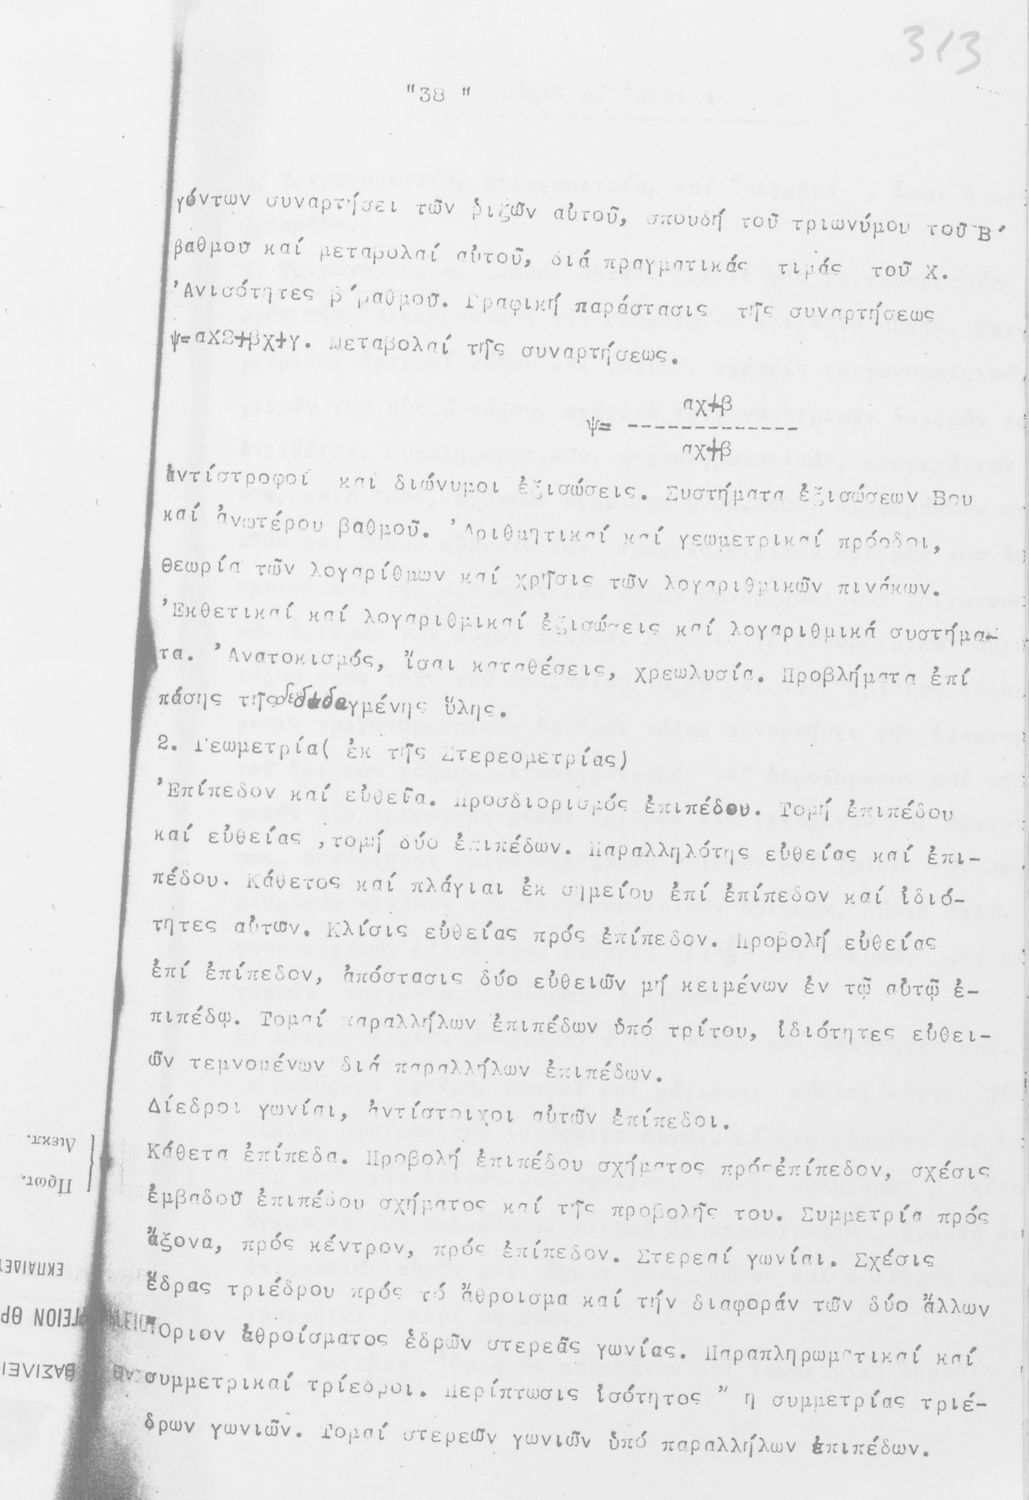 313
"38 "
γόντων συναρτήσει τῶν ριζῶν αὐτοῦ, σπουδή τοῦ τριωνύμου τοῦ Β΄
βαθμοῦ καί μεταβολαί αὐτοῦ, διά πραγματικάς τιμάς τοῦ Χ.
Ἀνισότητες β΄βαθμοῦ. Γραφική παράστασις τῆς συναρτήσεως
ψ=αΧ2+βχ+γ. Μεταβολαί τῆς συναρτήσεως.
αχ+β
ψ= -------------
αχ+β
ἀντίστροφοί καί διώνυμοι ἐξισώσεις. Συστήματα ἐξισώσεων Βου
καί ἀνωτέρου βαθμοῦ. Ἀριθμητικαί καί γεωμετρικαί πρόοδοι,
θεωρία τῶν λογαρίθμων καί χρῆσις τῶν λογαριθμικῶν πινάκων.
Ἐκθετικαί καί λογαριθμικαί ἐξισώσεις καί λογαριθμικά συστήμα-
τα. Ἀνατοκισμός, ἴσαι καταθέσεις, χρεωλυσία. Προβλήματα ἐπί
πάσης τῆς δεδιδαγμένης ὕλης.
2. Γεωμετρία( ἐκ τῆς Στερεομετρίας)
Ἐπίπεδον καί εὐθεῖα. Προσδιορισμός ἐπιπέδου. Τομή ἐπιπέδου
καί εὐθείας ,τομή δύο ἐπιπέδων. Παραλληλότης εὐθείας καί ἐπι-
πέδου. Κάθετος καί πλάγιαι ἐκ σημείου ἐπί ἐπίπεδον καί ἰδιό-
τητες αὐτῶν. Κλίσις εὐθείας πρός ἐπίπεδον. Προβολή εὐθείας
ἐπί ἐπίπεδον, ἀπόστασις δύο εὐθειῶν μή κειμένων ἐν τῷ αὐτῷ ἐ-
πιπέδῳ. Τομαί παραλλήλων ἐπιπέδων ὑπό τρίτου, ἰδιότητες εὐθει-
ῶν τεμνομένων διά παραλλήλων ἐπιπέδων.
Δίεδροι γωνίαι, ἀντίστοιχοι αὐτῶν ἐπίπεδοι.
Κάθετα ἐπίπεδα. Προβολή ἐπιπέδου σχήματος πρός ἐπίπεδον, σχέσις
ἐμβαδοῦ ἐπιπέδου σχήματος καί τῆς προβολῆς του. Συμμετρία πρός
ἄξονα, πρός κέντρον, πρός ἐπίπεδον. Στερεαί γωνίαι. Σχέσις
ἕδρας τριέδρου πρός τό ἄθροισμα καί τήν διαφοράν τῶν δύο ἄλλων
Ὅριον ἀθροίσματος ἑδρῶν στερεᾶς γωνίας. Παραπληρωματικαί καί
συμμετρικαί τρίεδροι. Περίπτωσις ἰσότητος " η συμμετρίας τριέ-
δρων γωνιῶν. Τομαί στερεῶν γωνιῶν ὑπό παραλλήλων ἐπιπέδων.
Διεκπ.
Πρωτ.